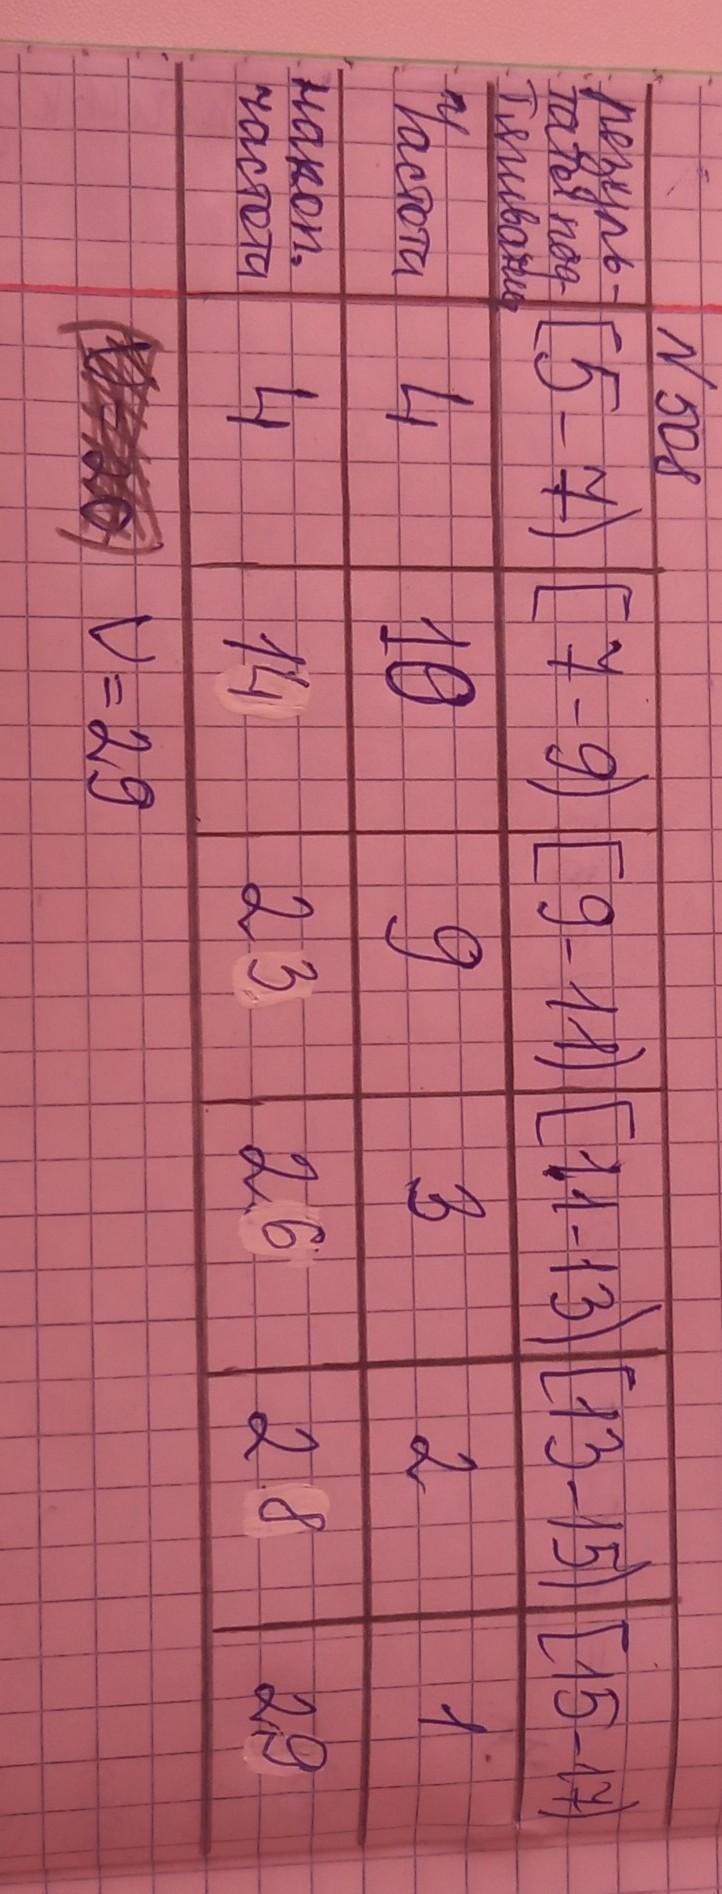 N 508
Резуль-
таты под-
тягивания [5-7) [7-9) [9-11) [11-13) [13-15) [15-17)
Частота 4 10 9 3 2 1
накоп.
частота 4 14 23 26 28 29
V=29